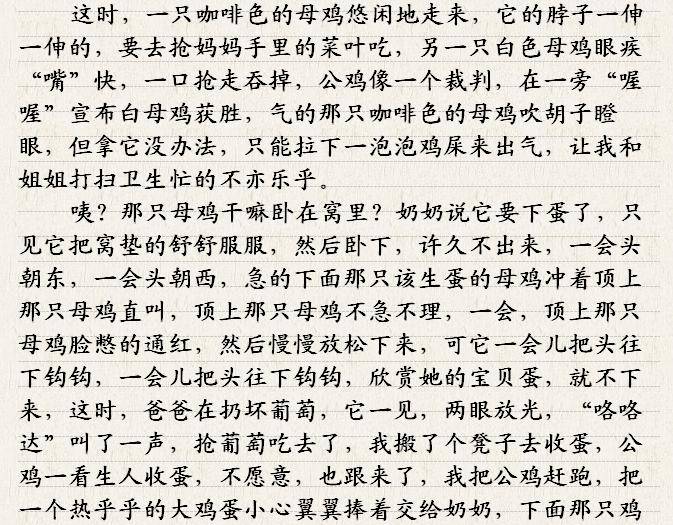 这时，一只咖啡色的母鸡悠闲地走来，它的脖子一伸
一伸的，要去抢妈妈手里的菜叶吃，另一只白色母鸡眼疾
“嘴”快，一口抢走吞掉，公鸡像一个裁判，在一旁“喔
喔”宣布白母鸡获胜，气的那只咖啡色的母鸡吹胡子瞪
眼，但拿它没办法，只能拉下一泡泡鸡屎来出气，让我和
姐姐打扫卫生忙的不亦乐乎。
咦？那只母鸡干嘛卧在窝里？奶奶说它要下蛋了，只
见它把窝垫的舒舒服服，然后卧下，许久不出来，一会头
朝东，一会头朝西，急的下面那只该生蛋的母鸡冲着顶上
那只母鸡直叫，顶上那只母鸡不急不理，一会，顶上那只
母鸡脸憋的通红，然后慢慢放松下来，可它一会儿把头往
下钩钩，一会儿把头往下钩钩，欣赏她的宝贝蛋，就不下
来，这时，爸爸在扔坏葡萄，它一见，两眼放光，“咯咯
达”叫了一声，抢葡萄吃去了，我搬了个凳子去收蛋，公
鸡一看生人收蛋，不愿意，也跟来了，我把公鸡赶跑，把
一个热乎乎的大鸡蛋小心翼翼捧着交给奶奶，下面那只鸡